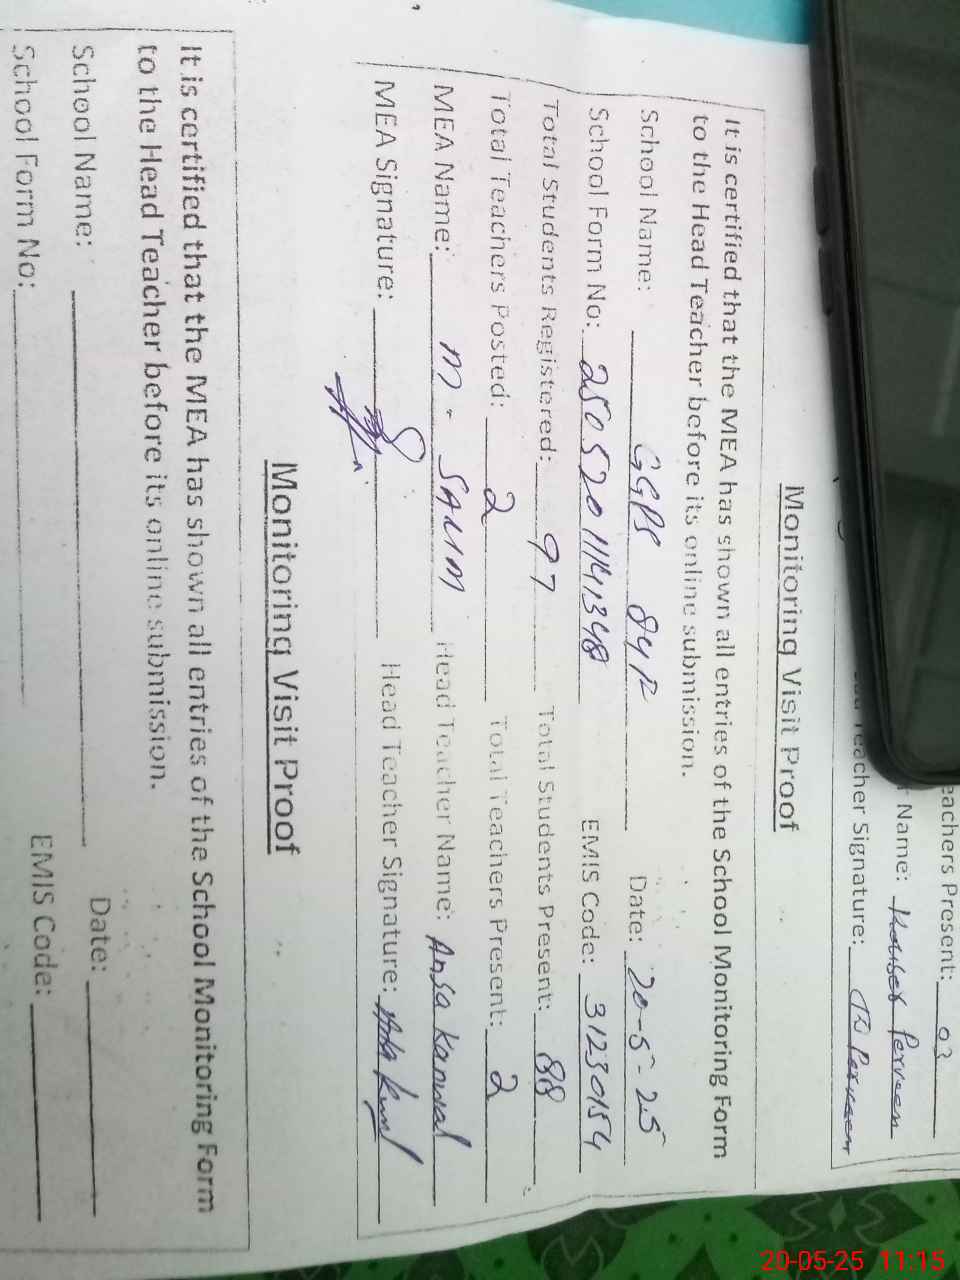 eachers Present: 03
Name: Kouser Perveen
Teacher Signature:
Monitoring Visit Proof
It is certified that the MEA has shown all entries of the School Monitoring Form
to the Head Teacher before its online submission.
School Name: GGPS 84P Date: 20-5-25
School Form No: EMIS Code: 31230154
Total Students Registered: 97 Total Students Present: 88
Total Teachers Posted: 2 Total Teachers Present: 2
MEA Name: M. SALIM Head Teacher Name: Ansa Kanwal
MEA Signature: Head Teacher Signature:
Monitoring Visit Proof
It is certified that the MEA has shown all entries of the School Monitoring Form
to the Head Teacher before its online submission.
School Name: Date:
School Form No: EMIS Code:
20-05-25 11:15